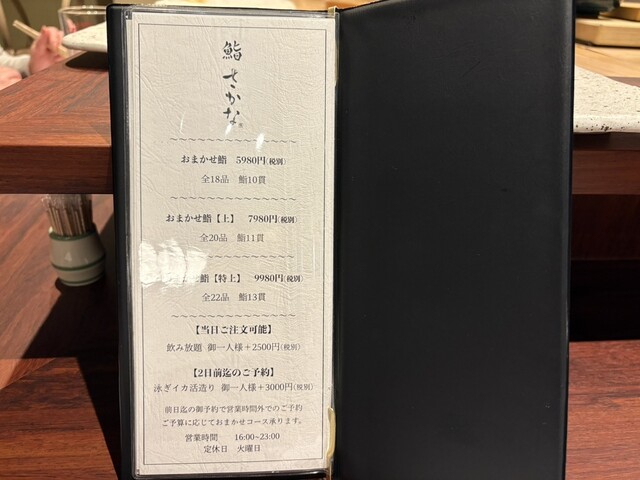 鮨
さかな
おまかせ鮨 5980円(税別)
全18品 鮨10貫
おまかせ鮨【上】 7980円(税別)
全20品 鮨11貫
鮨【特上】 9980円(税別)
全22品 鮨13貫
【当日ご注文可能】
飲み放題 御一人様＋2500円(税別)
【2日前迄のご予約】
泳ぎイカ活造り 御一人様＋3000円(税別)
前日迄の御予約で営業時間外でのご予約
ご予算に応じておまかせコース承ります。
営業時間 16:00~23:00
定休日 火曜日